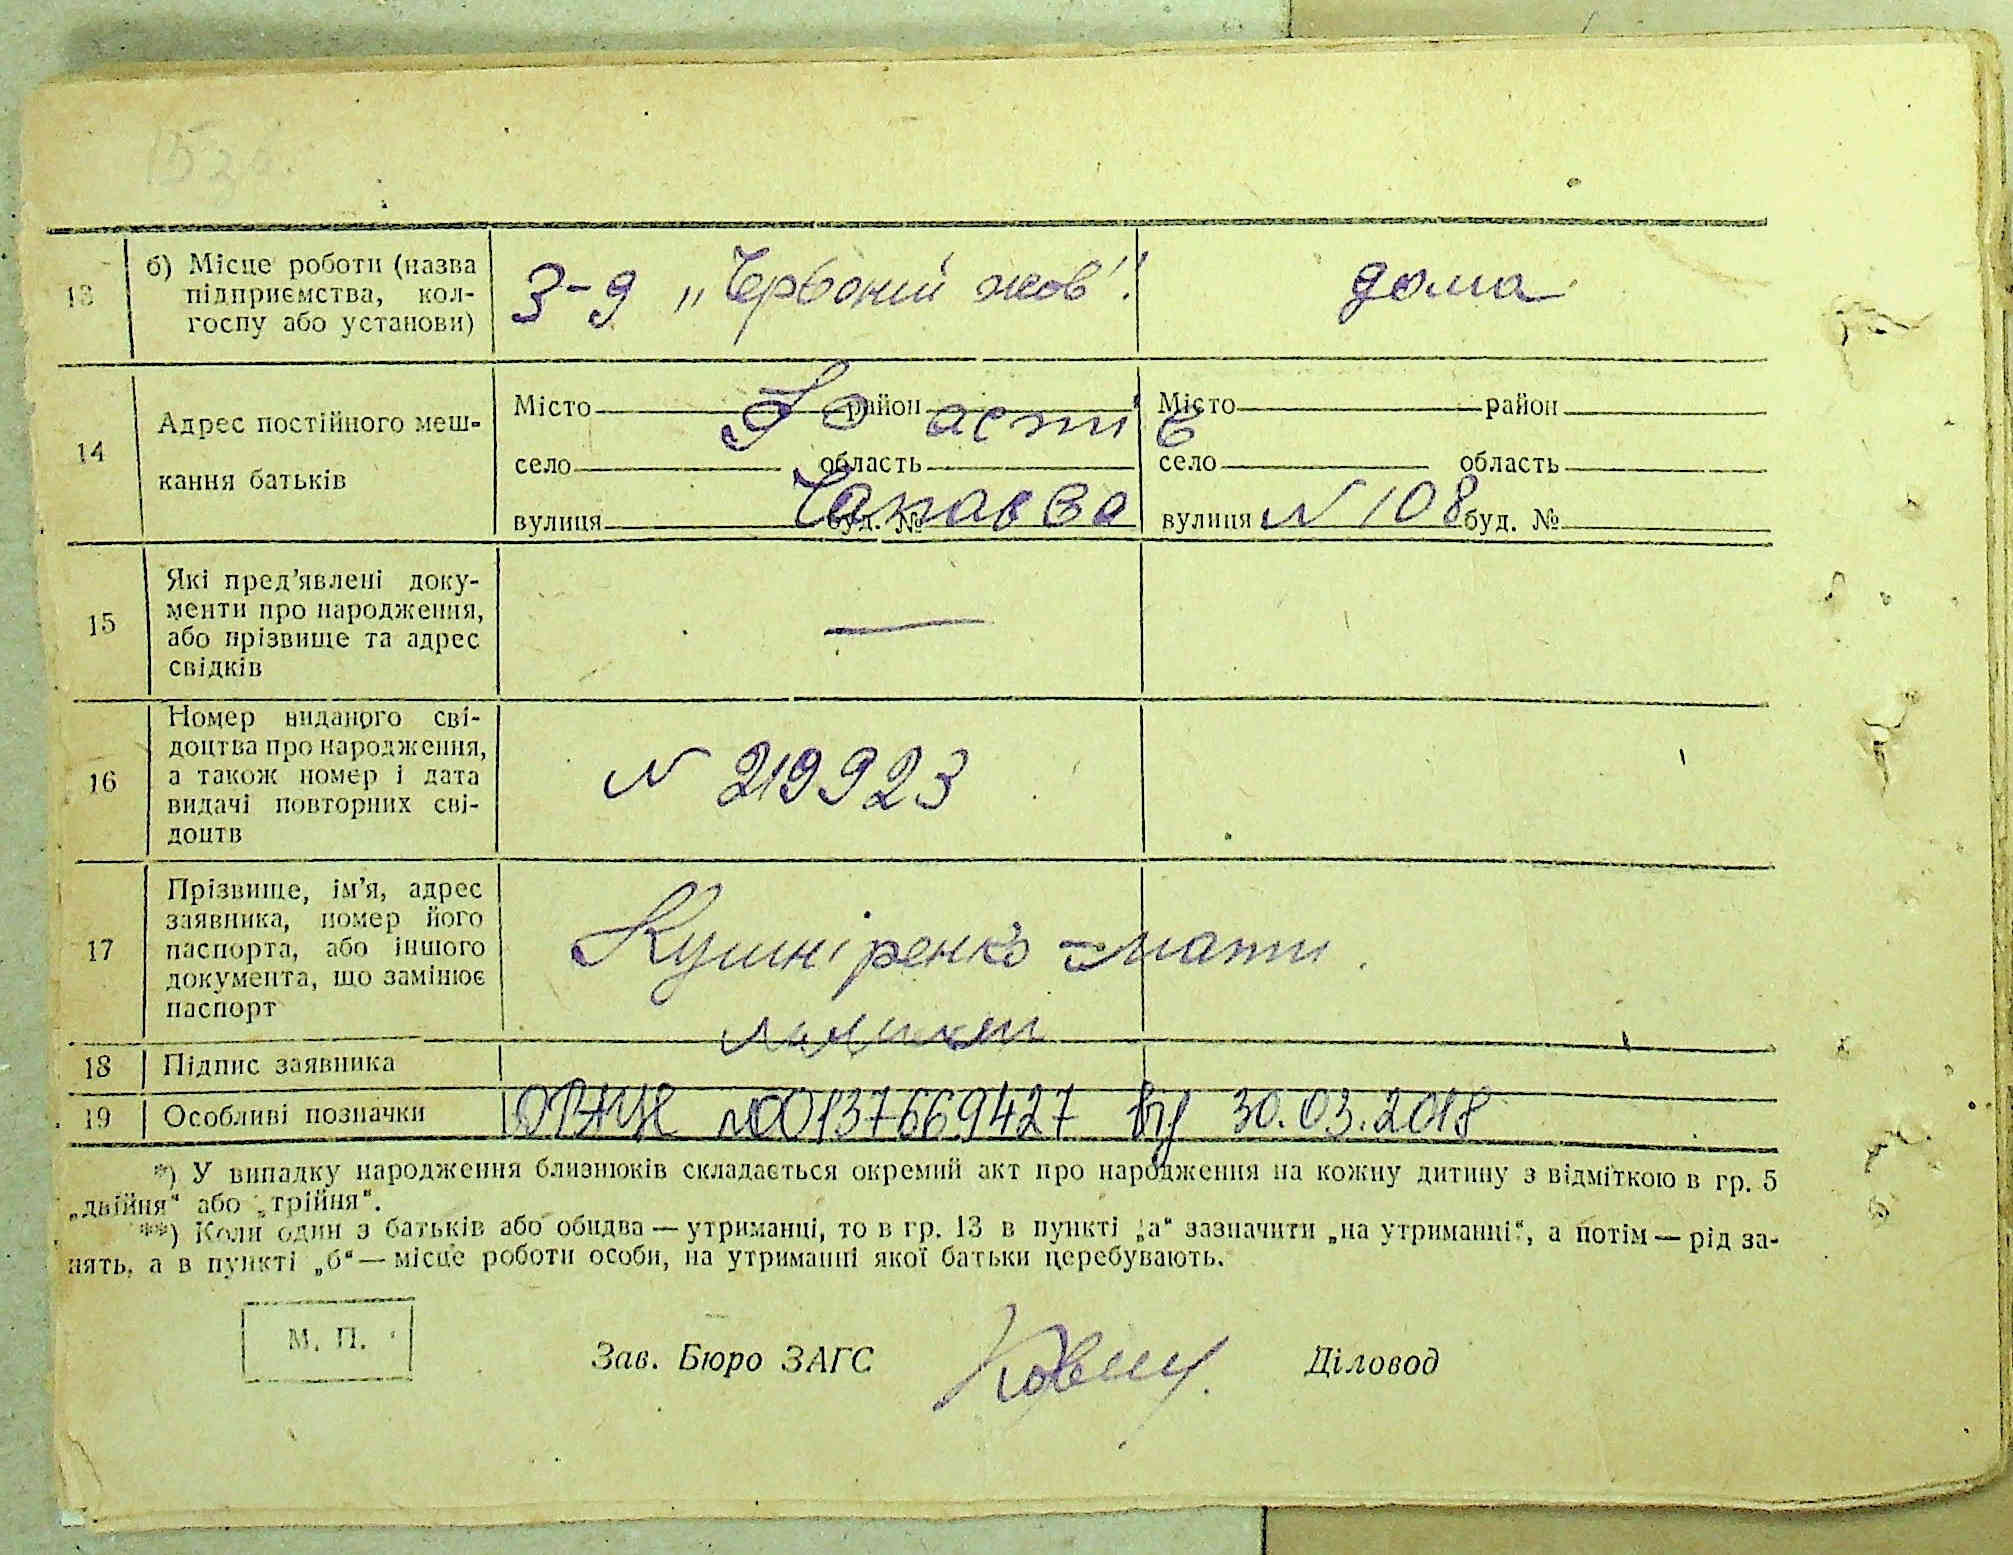 13
б) Місце роботи (назва
підприємства, кол-
госпу або установи)
З-д „Червоний жов".
дома
14
Адрес постійного меш-
кання батьків
Місто район
село область
вулиця Чапаєва буд. №
Місто район
село область
вулиця N 108 буд. №
15
Які пред'явлені доку-
менти про народження,
або прізвище та адрес
свідків
—
16
Номер виданого сві-
доцтва про народження,
а також номер і дата
видачі повторних сві-
доцтв
N 219923
17
Прізвище, ім'я, адрес
заявника, номер його
паспорта, або іншого
документа, що замінює
паспорт
Кушніренко - мати.
18
Підпис заявника
19
Особливі позначки
ДРАЦС №00137669427 від 30.03.2018
*) У випадку народження близнюків складається окремий акт про народження на кожну дитину з відміткою в гр. 5
„двійня" або „трійня".
**) Коли один з батьків або обидва — утриманці, то в гр. 13 в пункті „а" зазначити „на утриманні", а потім — рід за-
нять, а в пункті „б" — місце роботи особи, на утриманні якої батьки перебувають.
М. П.
Зав. Бюро ЗАГС
Діловод